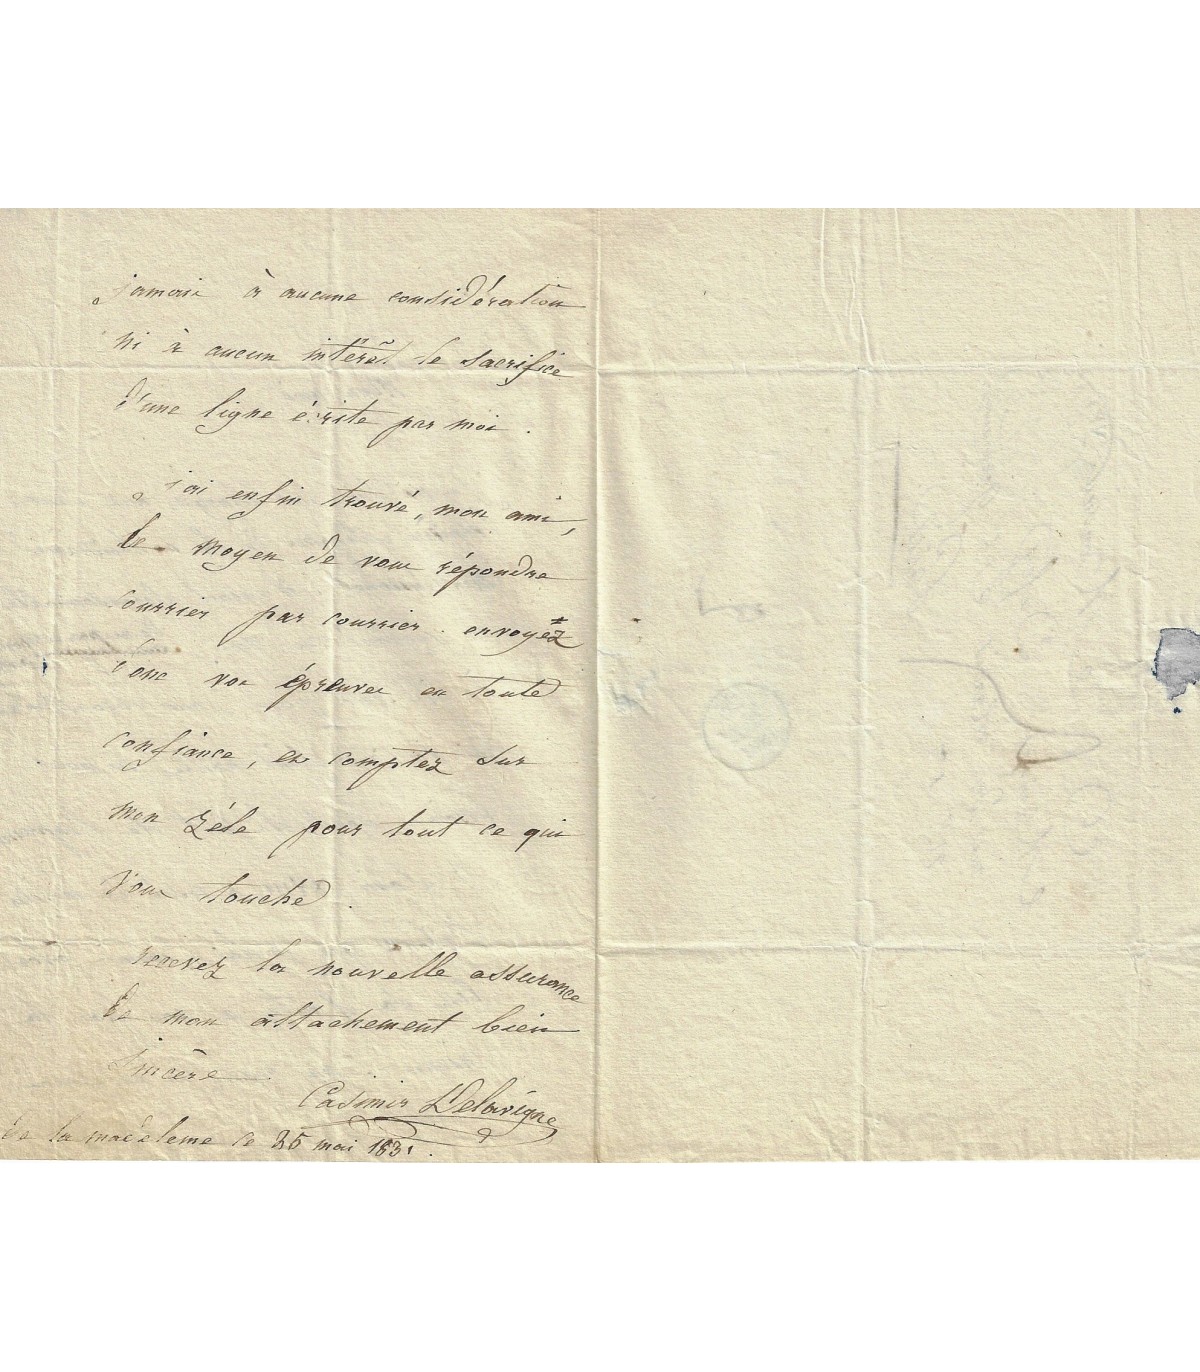 jamais à aucune considération
ni à aucun intérêt le sacrifice
d'une ligne écrite par moi.
j'ai enfin trouvé, mon ami,
le moyen de vous répondre
courrier par courrier. envoyez
donc vos épreuves en toute
confiance, et comptez sur
mon zéle pour tout ce qui
vous touche.
recevez la nouvelle assurance
de mon attachement bien
sincère.
Casimir Delavigne
de la madeleine ce 25 mai 1831.